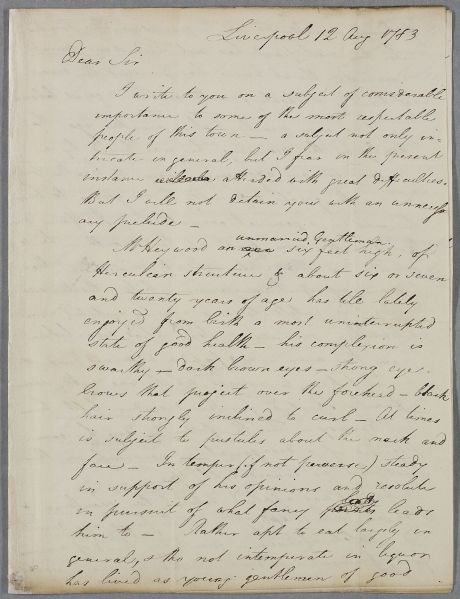 Liverpool 12 Aug 1783
Dear Sir
I write to you on a subject of considerable
importance to some of the most respectable
people of this town — a subject not only in-
tricate in general, but I fear in the present
instance attended with great difficulties.
But I will not detain you with an unnecessy
any prelude —
unmarried Gentleman
Mr Heywood an six feet high, of
Herculean structure & about six or seven
and twenty years of age, has till lately
enjoyed from birth a most uninterrupted
state of good health — his complexion is
swarthy — dark brown eyes — strong eye-
brows that project over the forehead — black
hair strongly inclined to curl — At times
is subject to pustules about the neck and
face — In temper (if not perverse) steady
in support of his opinions and resolute
in pursuit of what fancy leads
him to — Rather apt to eat largely in
general, & tho not intemperate in liquor
has lived as young gentlemen of good